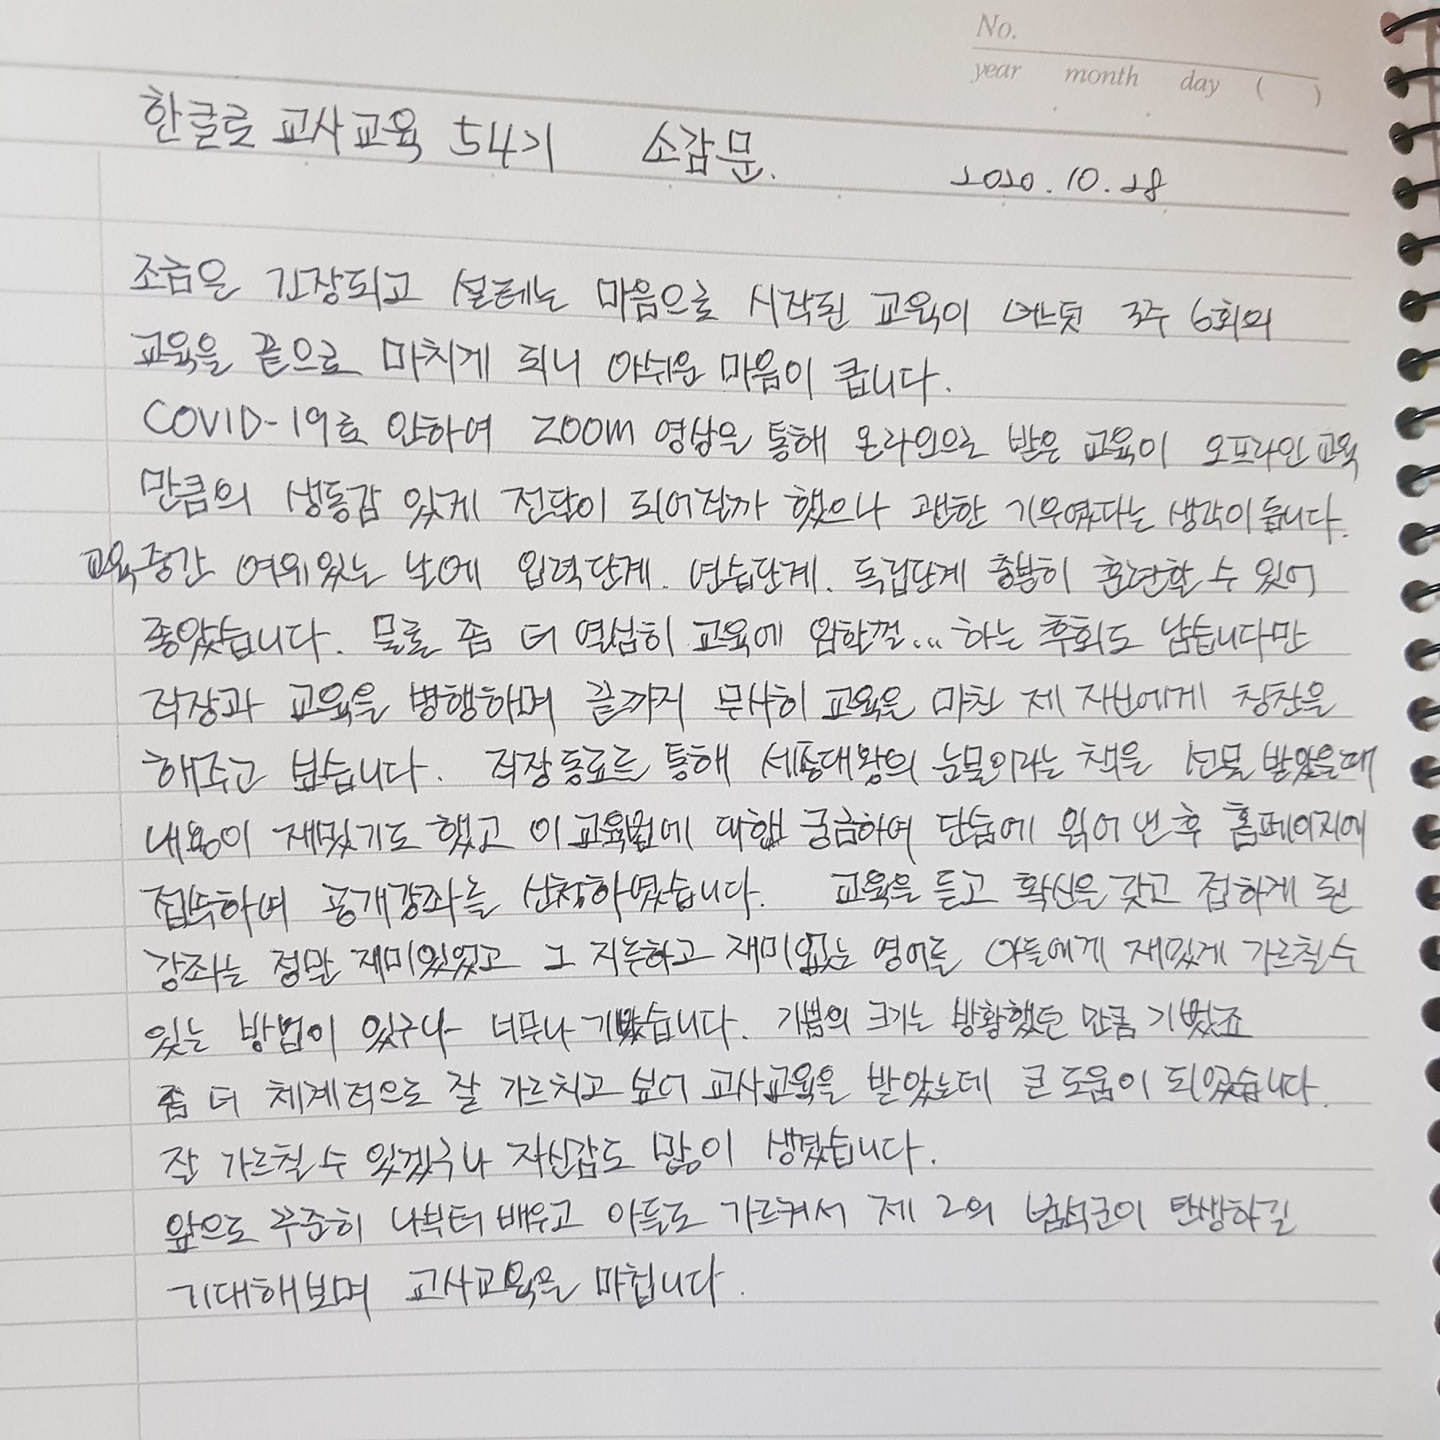 No.
year month day ( )
한글로 교사교육 54기 소감문.
2020.10.28
조금은 긴장되고 설레는 마음으로 시작된 교육이 어느덧 3주 6회의
교육을 끝으로 마치게 되니 아쉬운 마음이 큽니다.
COVID-19로 인하여 ZOOM 영상을 통해 온라인으로 받은 교육이 오프라인 교육
만큼의 생동감 있게 전달이 되어질까 했으나 괜한 기우였다는 생각이 듭니다.
교육중간 여유있는 날에 입력단계. 연습단계. 독립단계 충분히 훈련할 수 있어
좋았습니다. 물론 좀 더 열심히 교육에 임할껄... 하는 후회도 남습니다만
직장과 교육을 병행하며 끝까지 무사히 교육을 마친 제 자신에게 칭찬을
해주고 싶습니다. 직장동료를 통해 세종대왕의 눈물이라는 책을 선물 받았을때
내용이 재밌기도 했고 이 교육법에 대해 궁금하여 단숨에 읽어 낸 후 홈페이지에
접속하여 공개강좌를 신청하였습니다. 교육을 듣고 확신을 갖고 접하게 된
강좌는 정말 재미있었고 그 지루하고 재미없는 영어를 아들에게 재밌게 가르칠수
있는 방법이 있구나 너무나 기뻤습니다. 기쁨의 크기는 방황했던 만큼 기뻤죠
좀 더 체계적으로 잘 가르치고 싶어 교사교육을 받았는데 큰 도움이 되었습니다.
잘 가르칠 수 있겠구나 자신감도 많이 생겼습니다.
앞으로 꾸준히 나부터 배우고 아들도 가르켜서 제 2의 탄생하길
기대해보며 교사교육을 마칩니다.